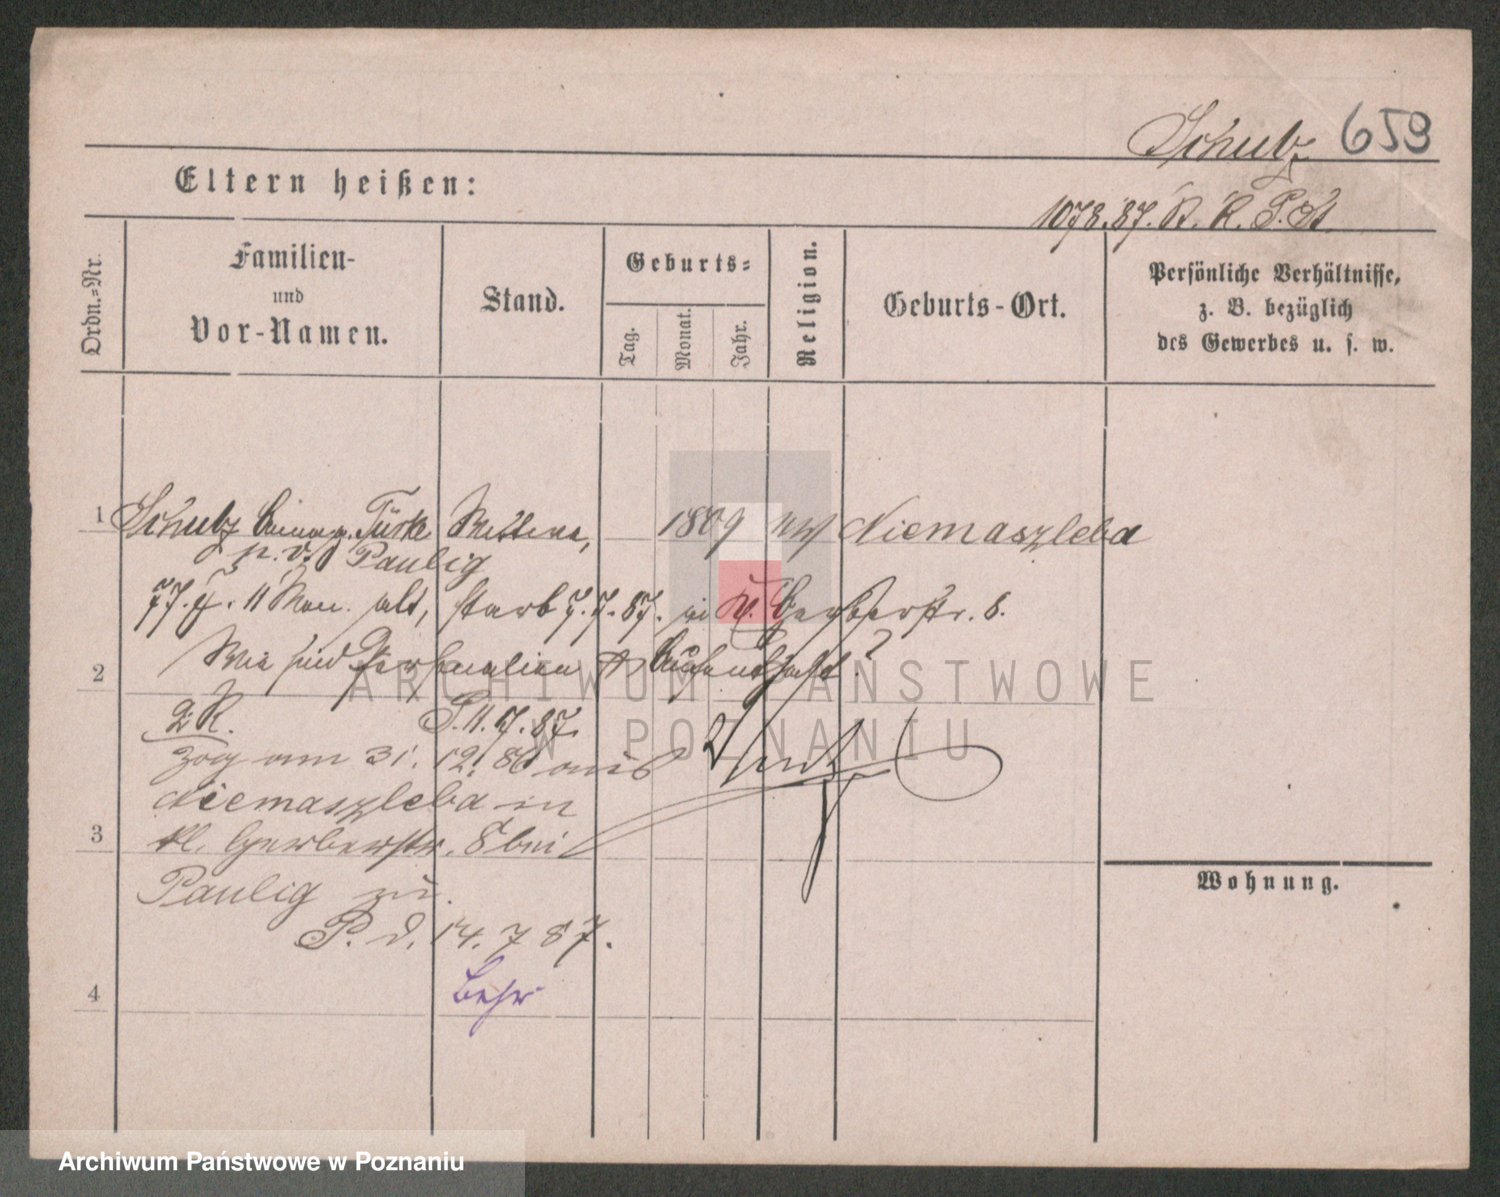 Schulz 659
Eltern heißen:
1078.87. K. R. P. St.
Ordn.-Nr.
Familien-
und
Vor-Namen.
Stand.
Geburts-
Tag.
Monat.
Jahr.
Religion.
Geburts-Ort.
Persönliche Verhältnisse,
z. B. bezüglich
des Gewerbes u. s. w.
1 Schulz Türk Wittwe, 1809 Niemaszleba
n. v. Paulig
77 J. 11 Mon. alt, starb 7.7.87. Gerberstr. 8.
2 Wie sind Personalien Aufenthalt?
R. P. 11.7.87.
zog am 31. 12. 86 aus
Niemaszleba in
3 kl. Gerberstr. 8 bei
Paulig zu.
P. d. 14. 7 87.
4 Behr
Wohnung.
ARCHIWUM PAŃSTWOWE
W POZNANIU
Archiwum Państwowe w Poznaniu